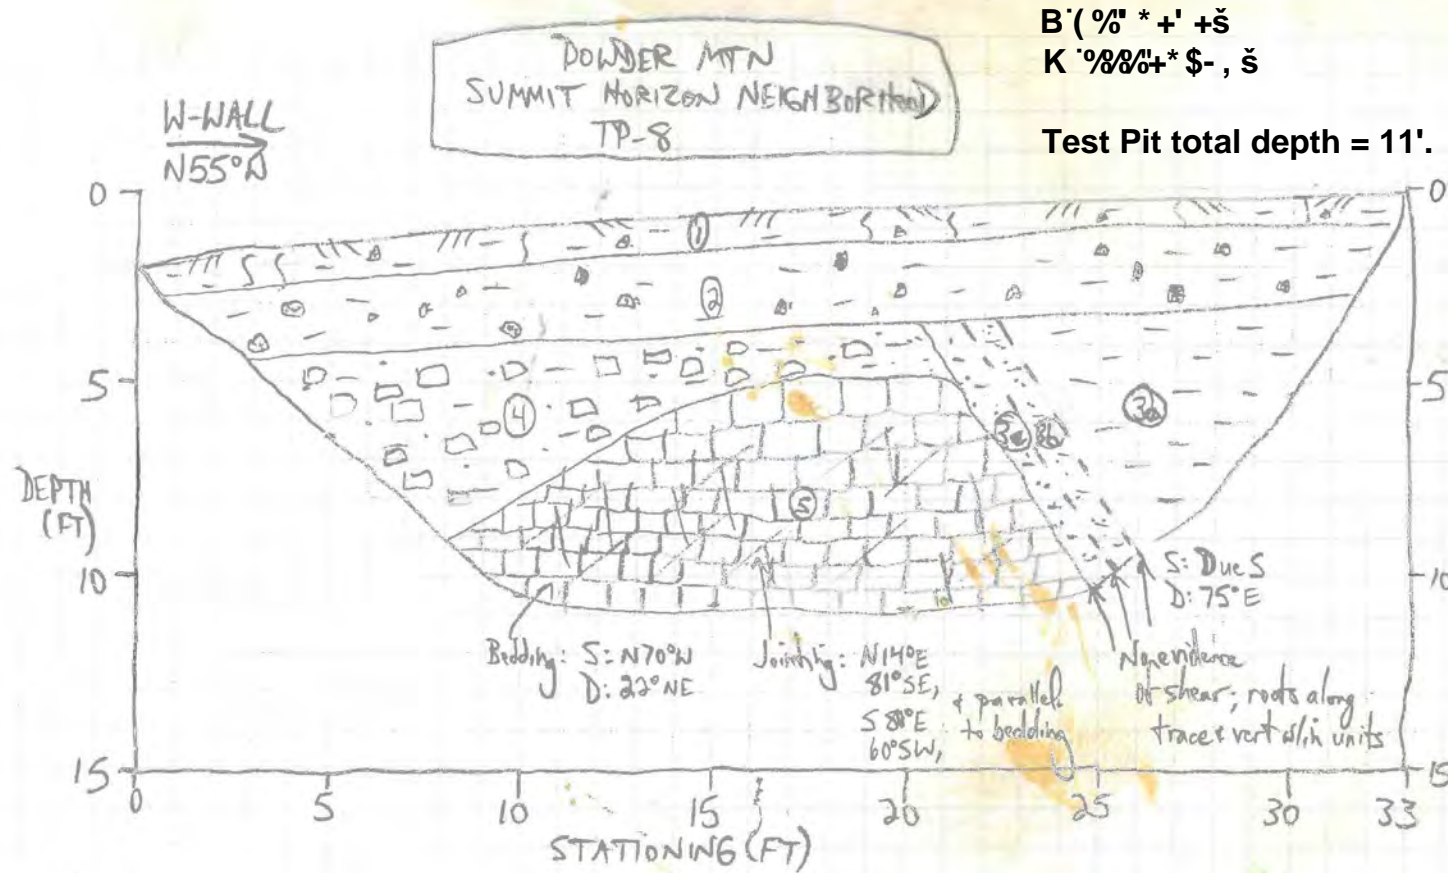 B˙( %' * +' +š
K ˙%%%'+* $- , š
Test Pit total depth = 11'.
POWDER MTN
SUMMIT HORIZON NEIGHBORHOOD
TP-8
W-WALL
N55°W
0
5
10
15
DEPTH
(FT)
0
5
10
15
1
2
4
5
3b
3a
S: Due S
D: 75°E
Bedding: S: N70°W
D: 22°NE
Jointing: N14°E
81°SE,
60°SW,
& parallel
to bedding
No evidence
of shear; roots along
trace & vert w/in units
0
5
10
15
20
25
30
33
STATIONING (FT)